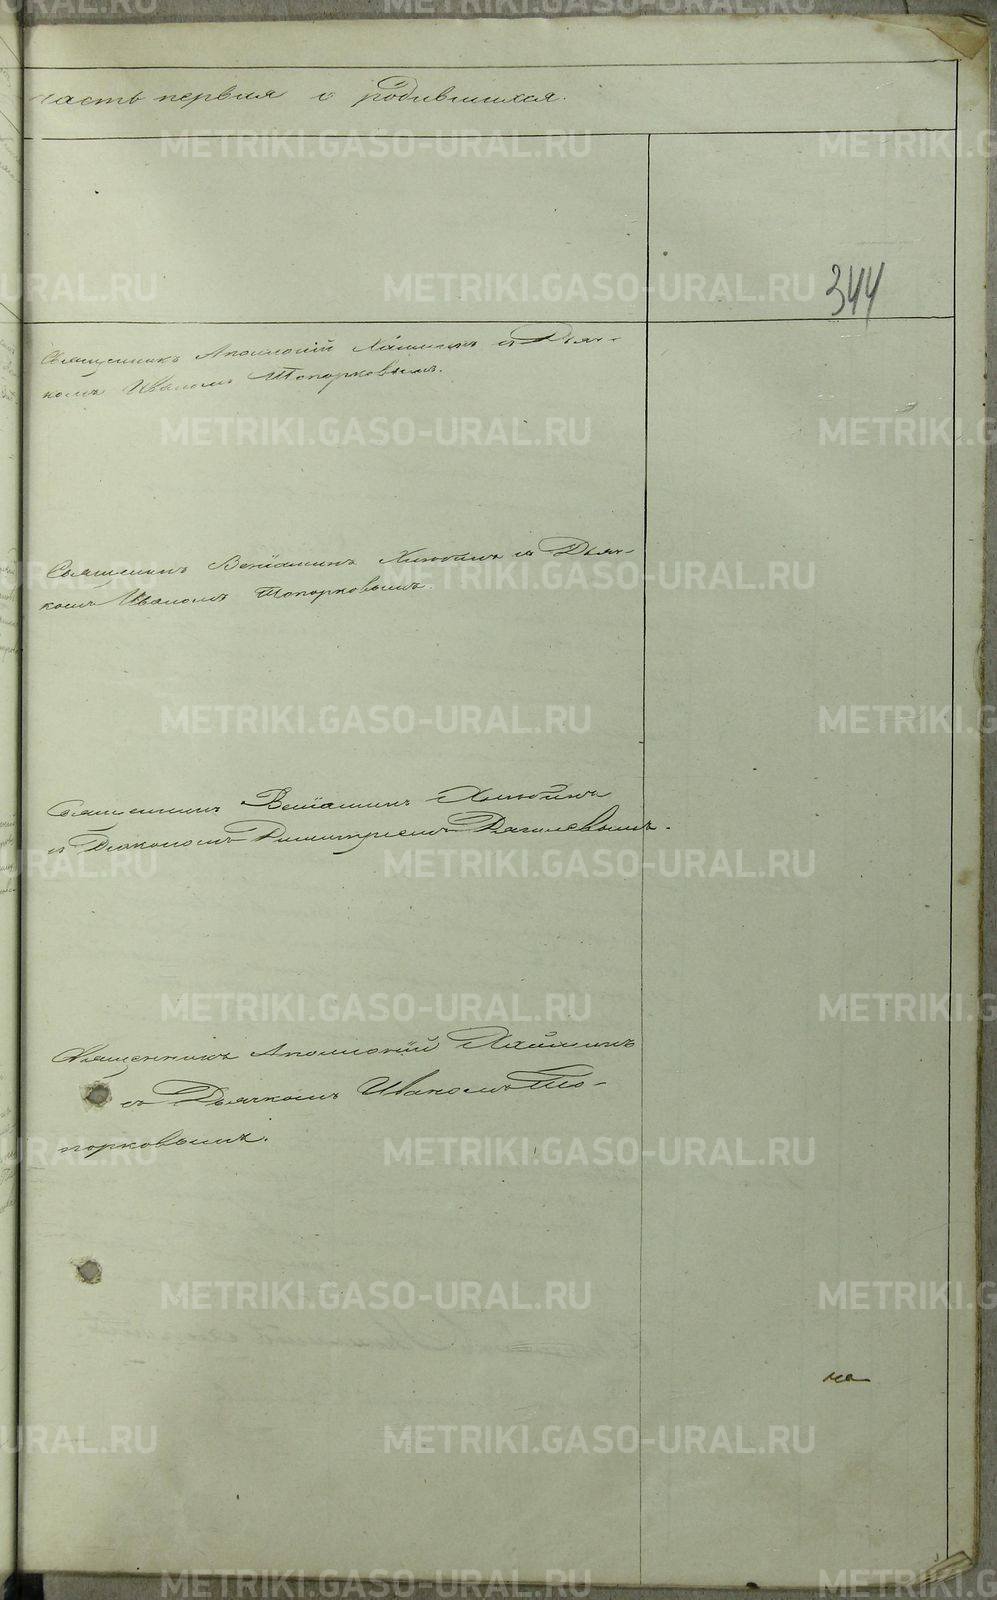 часть первая о родившихся.
344
Священникъ Аполлоній Ляпинъ съ Дьяч-
комъ Иваномъ Топорковымъ.
Священникъ Веніаминъ съ Дьяч-
комъ Иваномъ Топорковымъ.
Священникъ Веніаминъ
съ Діакономъ Димитріемъ Вагилевымъ.
Священникъ Аполлоній
съ Дьячкомъ Иваномъ То-
порковымъ.
METRIKI.GASO-URAL.RU